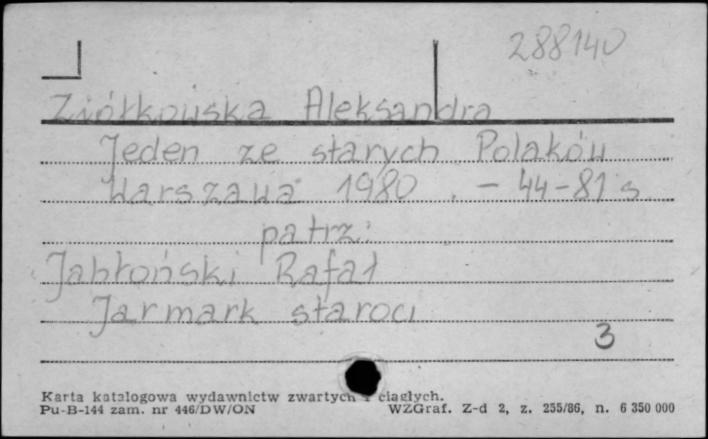 288140
Ziółkowska Aleksandra
Jeden ze starych Polaków
Warszawa 1980. – 44-81 s.
patrz:
Jabłoński Rafał
Jarmark staroci
3
Karta katalogowa wydawnictw zwartych i ciągłych.
Pu-B-144 zam. nr 446/DW/ON WZGraf. Z-d 2, z. 255/86, n. 6 350 000